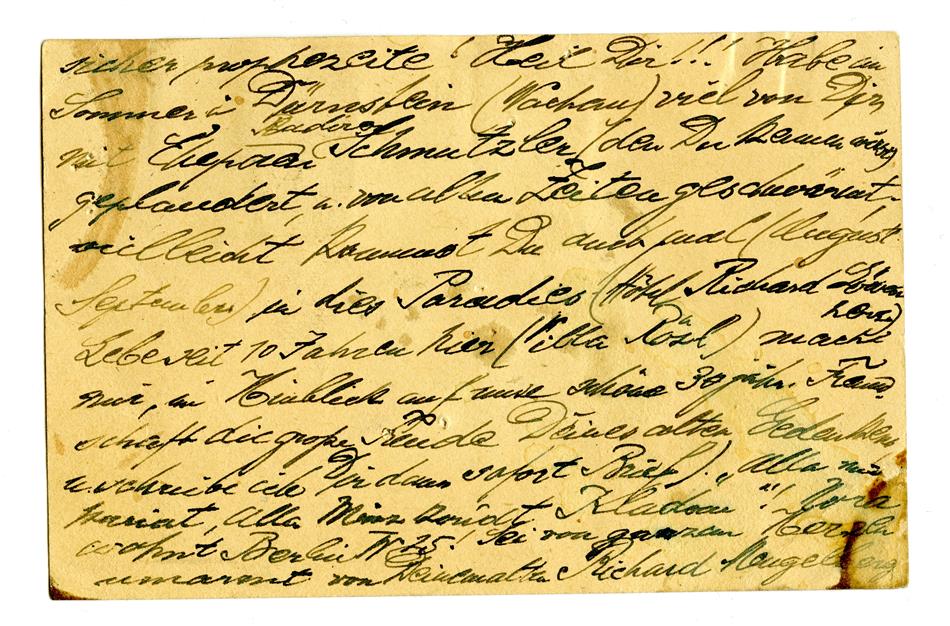 sicher prophezeite! Heil Dir!!! Habe im
Sommer in Dürnstein (Wachau) viel von Dir
mit Ehepaar Schmutzler (den Du kennen
geplaudert, u. von alten Zeiten geschwärmt,
vielleicht kommst Du auch mal (August
September) in dies Paradies (Hôtel Richard Löwen
herz)
Lebe seit 10 Jahren hier (Villa Rosl) mache
mir, in Hinblick auf unse schöne 39 jähr. Freund
schaft die große Freude Deines alten Gedenkens
u. schreibe ich Dir dann sofort Brief).
Kladow"! Nora
wohnt Berlin W 25! Sei von ganzem Herzen
umarmt von Deinem alten Richard Mengelberg